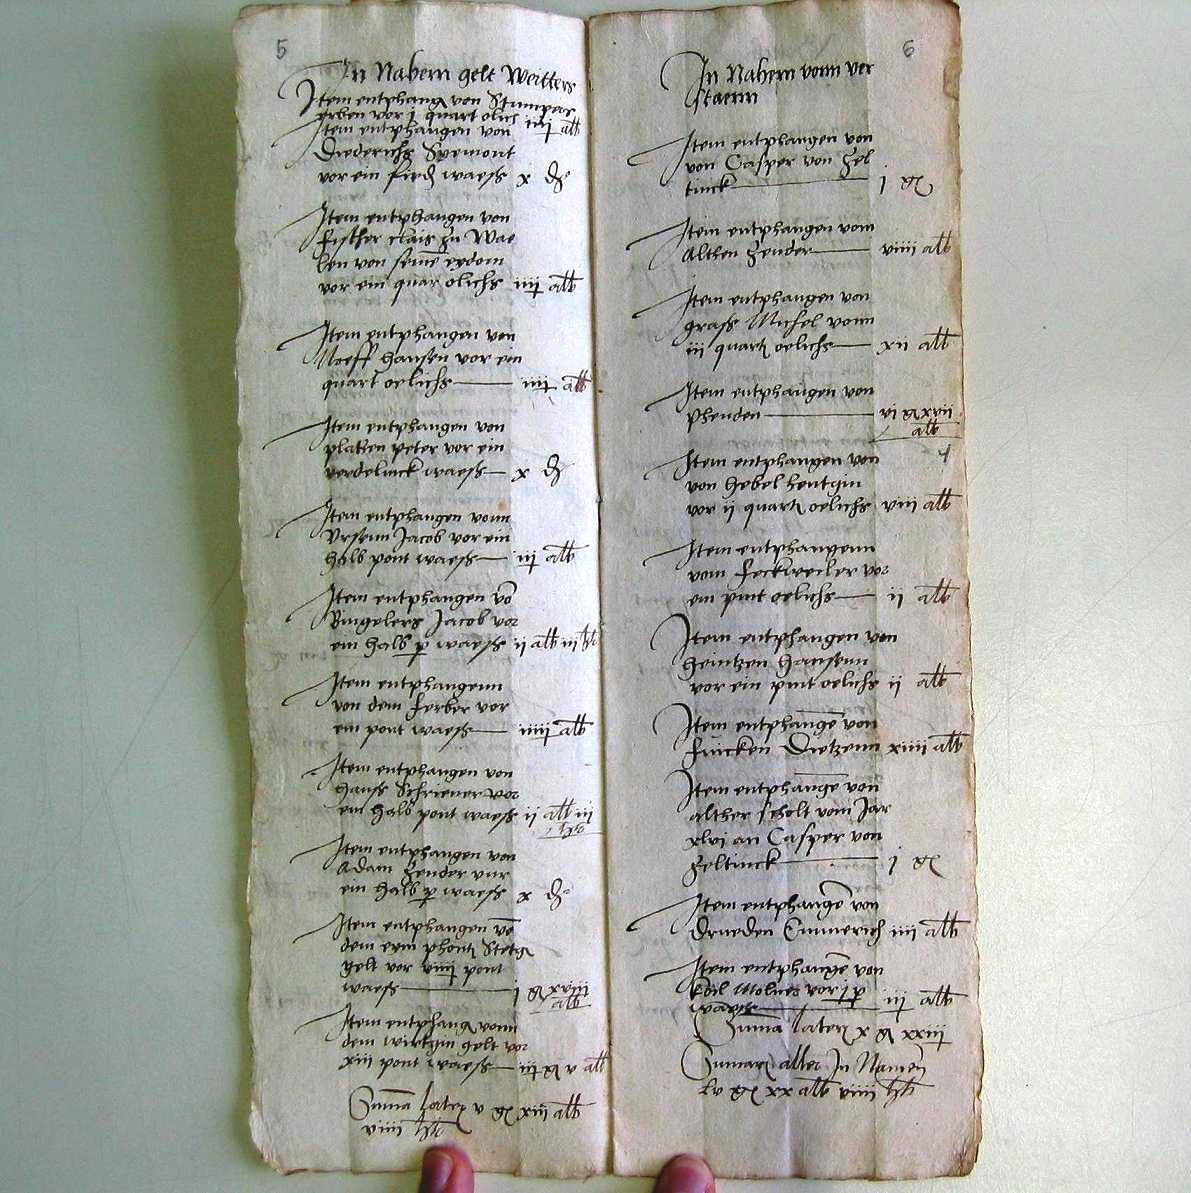 5
In Nabern gelt Weitters
Item entphang von Stumpers
erben vor j quart olichs iiij alb
Item entphangen von
Diederichs
vor ein firdz waeß x d
Item entphangen von
fischer clais zu Wae
len von seinē eydom
vor ein quar olichs iiij alb
Item entphangen von
Noeff hansen vor ein
quart oelichs iiij alb
Item entphangen von
platten peter vor ein
verdelinck waeß x d
Item entphangen vonn
Jacob vor ein
halb pont waeß iij alb
Item entphangen vō
Ringelers Jacob vor
ein halb p waeß ii alb iii hlr
Item entphangenn
von dem ferber vor
ein pont waeß iiiij alb
Item entphangen von
hans Schriener vor
ein halb pont waeß ii alb iii
hlr
Item entphangen von
Adam Zender vur
ein halb p waeß x d
Item entphangen vō
dem
gelt vor viiij pont
waeß j gl xviij
alb
Item entphang vonn
dem gelt vor
xiii pont waeß iiij gl v alb
Suma lateris v gl xiii alb
viiii hlr
6
In Nabern vonn ver
staenn
Item entphangen von
von Casper von Zel
tinck j gl
Item entphangen vom
Althen Zender viiii alb
Item entphangen von
graff Michel vonn
iii quart oelichs xii alb
Item entphangen von
phenden vi gl xvii
alb
Item entphangen von
von hebel hentgin
vor ij quart oelichs viii alb
Item entphangenn
vom feckweiler vor
ein pint oelichs ij alb
Item entphangen von
heintzen hansenn
vor ein pint oelichs ij alb
Item entphangē von
fuicken Dietzenn xiiii alb
Item entphangē von
alther scholt vom Jar
xlvi an Casper von
Zeltinck j gl
Item entphangē von
drueden Emmerich iiii alb
Item entphangē von
Molners vor j p iij alb
waeß
Suma lateris x gl xxiij
Sumarū aller In Namen
lv gl xx alb viiii hlr